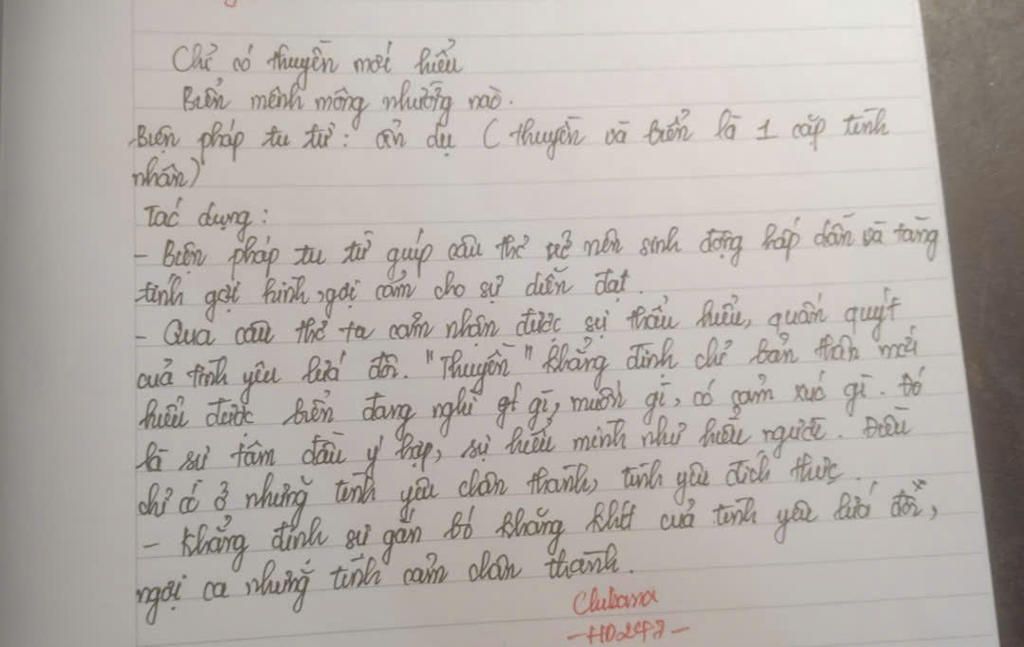 Chỉ có thuyền mới hiểu
Biển mênh mông nhường nào.
Biện pháp tu từ: ẩn dụ (thuyền và biển là 1 cặp tình
nhân)
Tác dụng:
- Biện pháp tu từ giúp câu thơ trở nên sinh động hấp dẫn và tăng
tính gợi hình, gợi cảm cho sự diễn đạt.
- Qua câu thơ ta cảm nhận được sự thấu hiểu, quấn quýt
của tình yêu lứa đôi. "Thuyền" khẳng định chỉ bản thân mới
hiểu được biển đang nghĩ gì, muốn gì, có cảm xúc gì. Đó
là sự tâm đầu ý hợp, sự hiểu mình như hiểu người. Điều
chỉ có ở những tình yêu chân thành, tình yêu đích thực.
- Khẳng định sự gắn bó khăng khít của tình yêu lứa đôi,
ngợi ca những tình cảm chân thành.
-HD247-